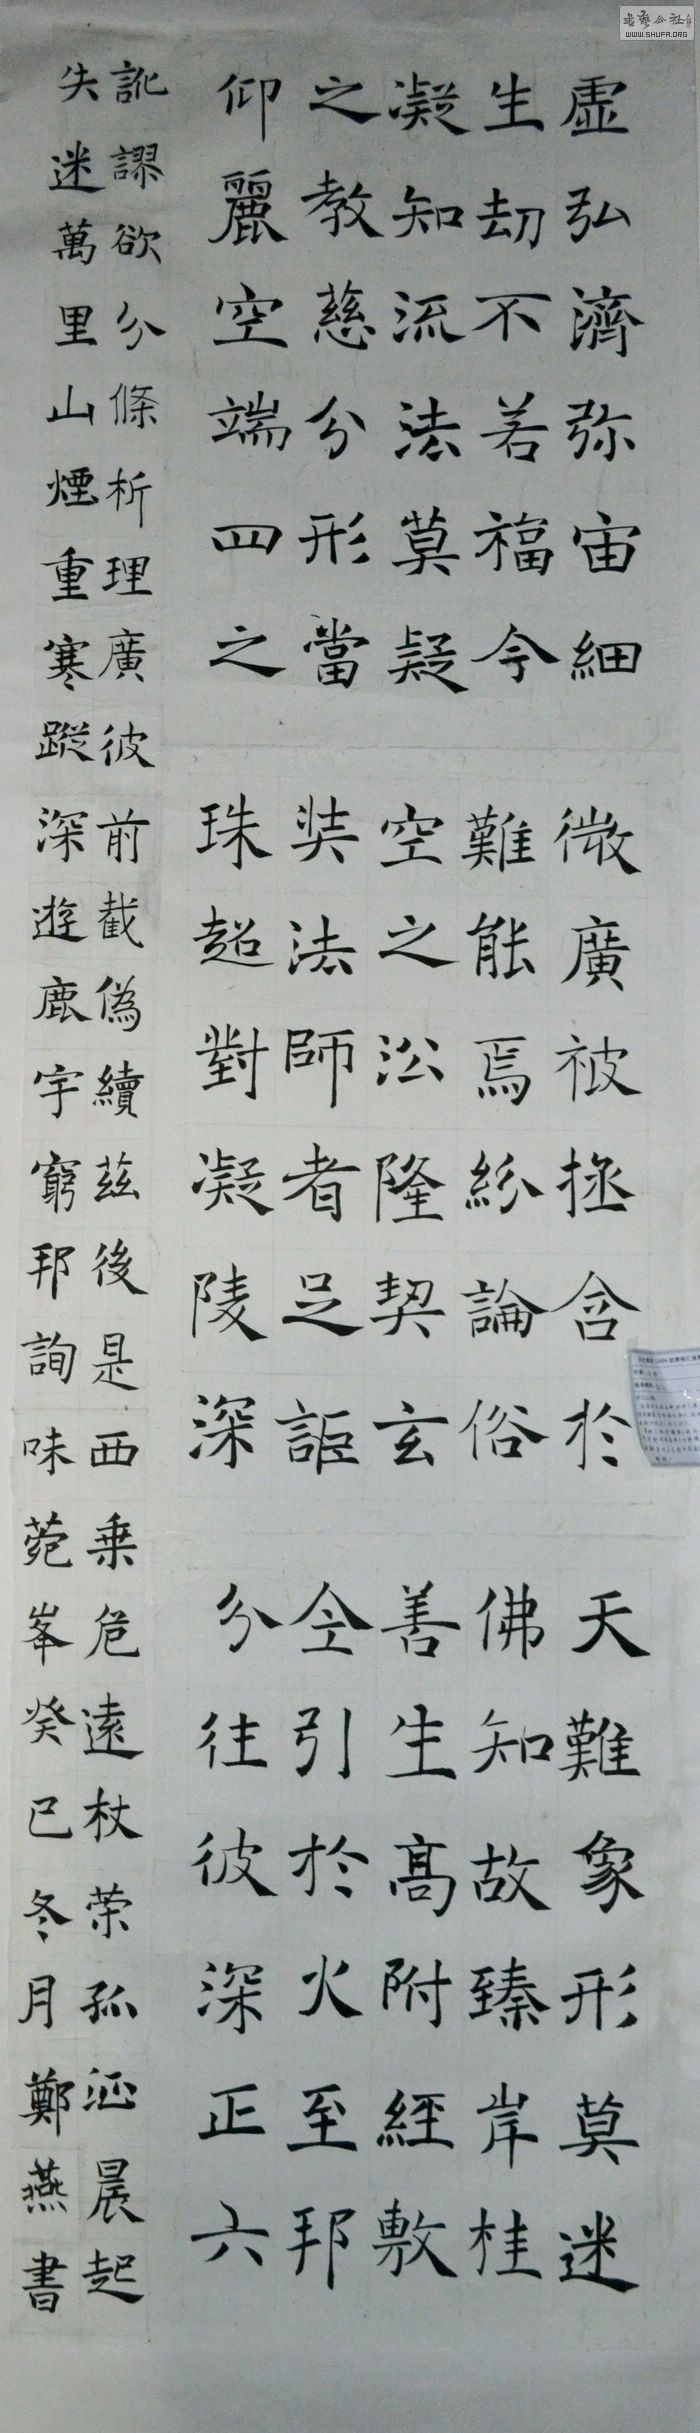 虛弘濟弥宙細
生劫不若福今
凝知流法莫疑
之教慈分形當
仰麗空端四之
微廣被拯含於
難能焉紛論俗
空之沿隆契玄
奘法師者足詎
珠超對凝陵深
天難象形莫迷
佛知故臻岸桂
善生高附經敷
仝引於火至邦
分往彼深正六
訛謬欲分條析理廣彼前截偽續茲後是西乘危遠杖策孤征晨起
失迷萬里山煙重寒蹤深遊鹿宇窮邦詢味菀峯癸巳冬月鄭燕書
書藝公社
WWW.SHUFA.ORG